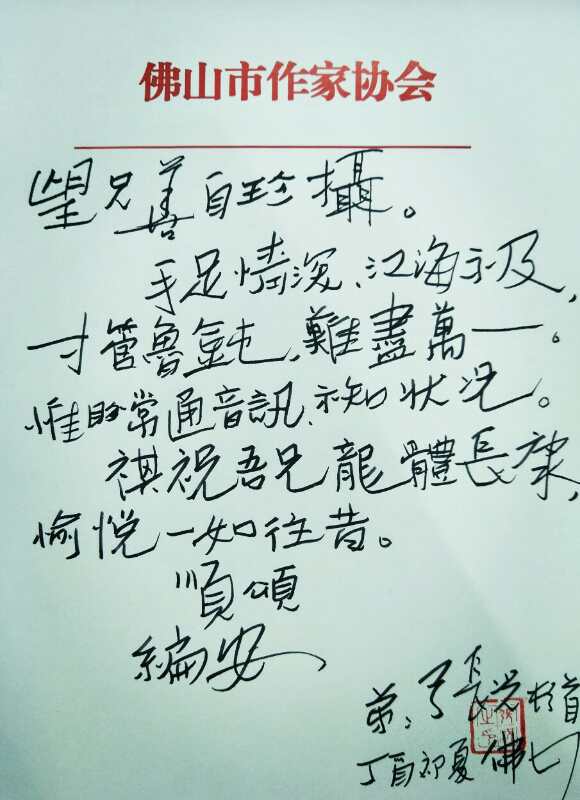 佛山市作家协会
望兄善自珍攝。
手足情深、江海不及，
寸管魯鈍，難盡萬一。
惟盼常通音訊、示知状况。
祺祝吾兄龍體長康，
愉悦一如往昔。
順頌
編安
弟：张 首
丁酉 夏 佛